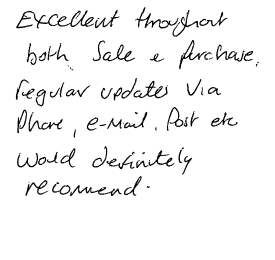 Excellent throughout
both Sale e purchase,
regular updates via
Phone, e-mail, Post etc
would definitely
recommend.